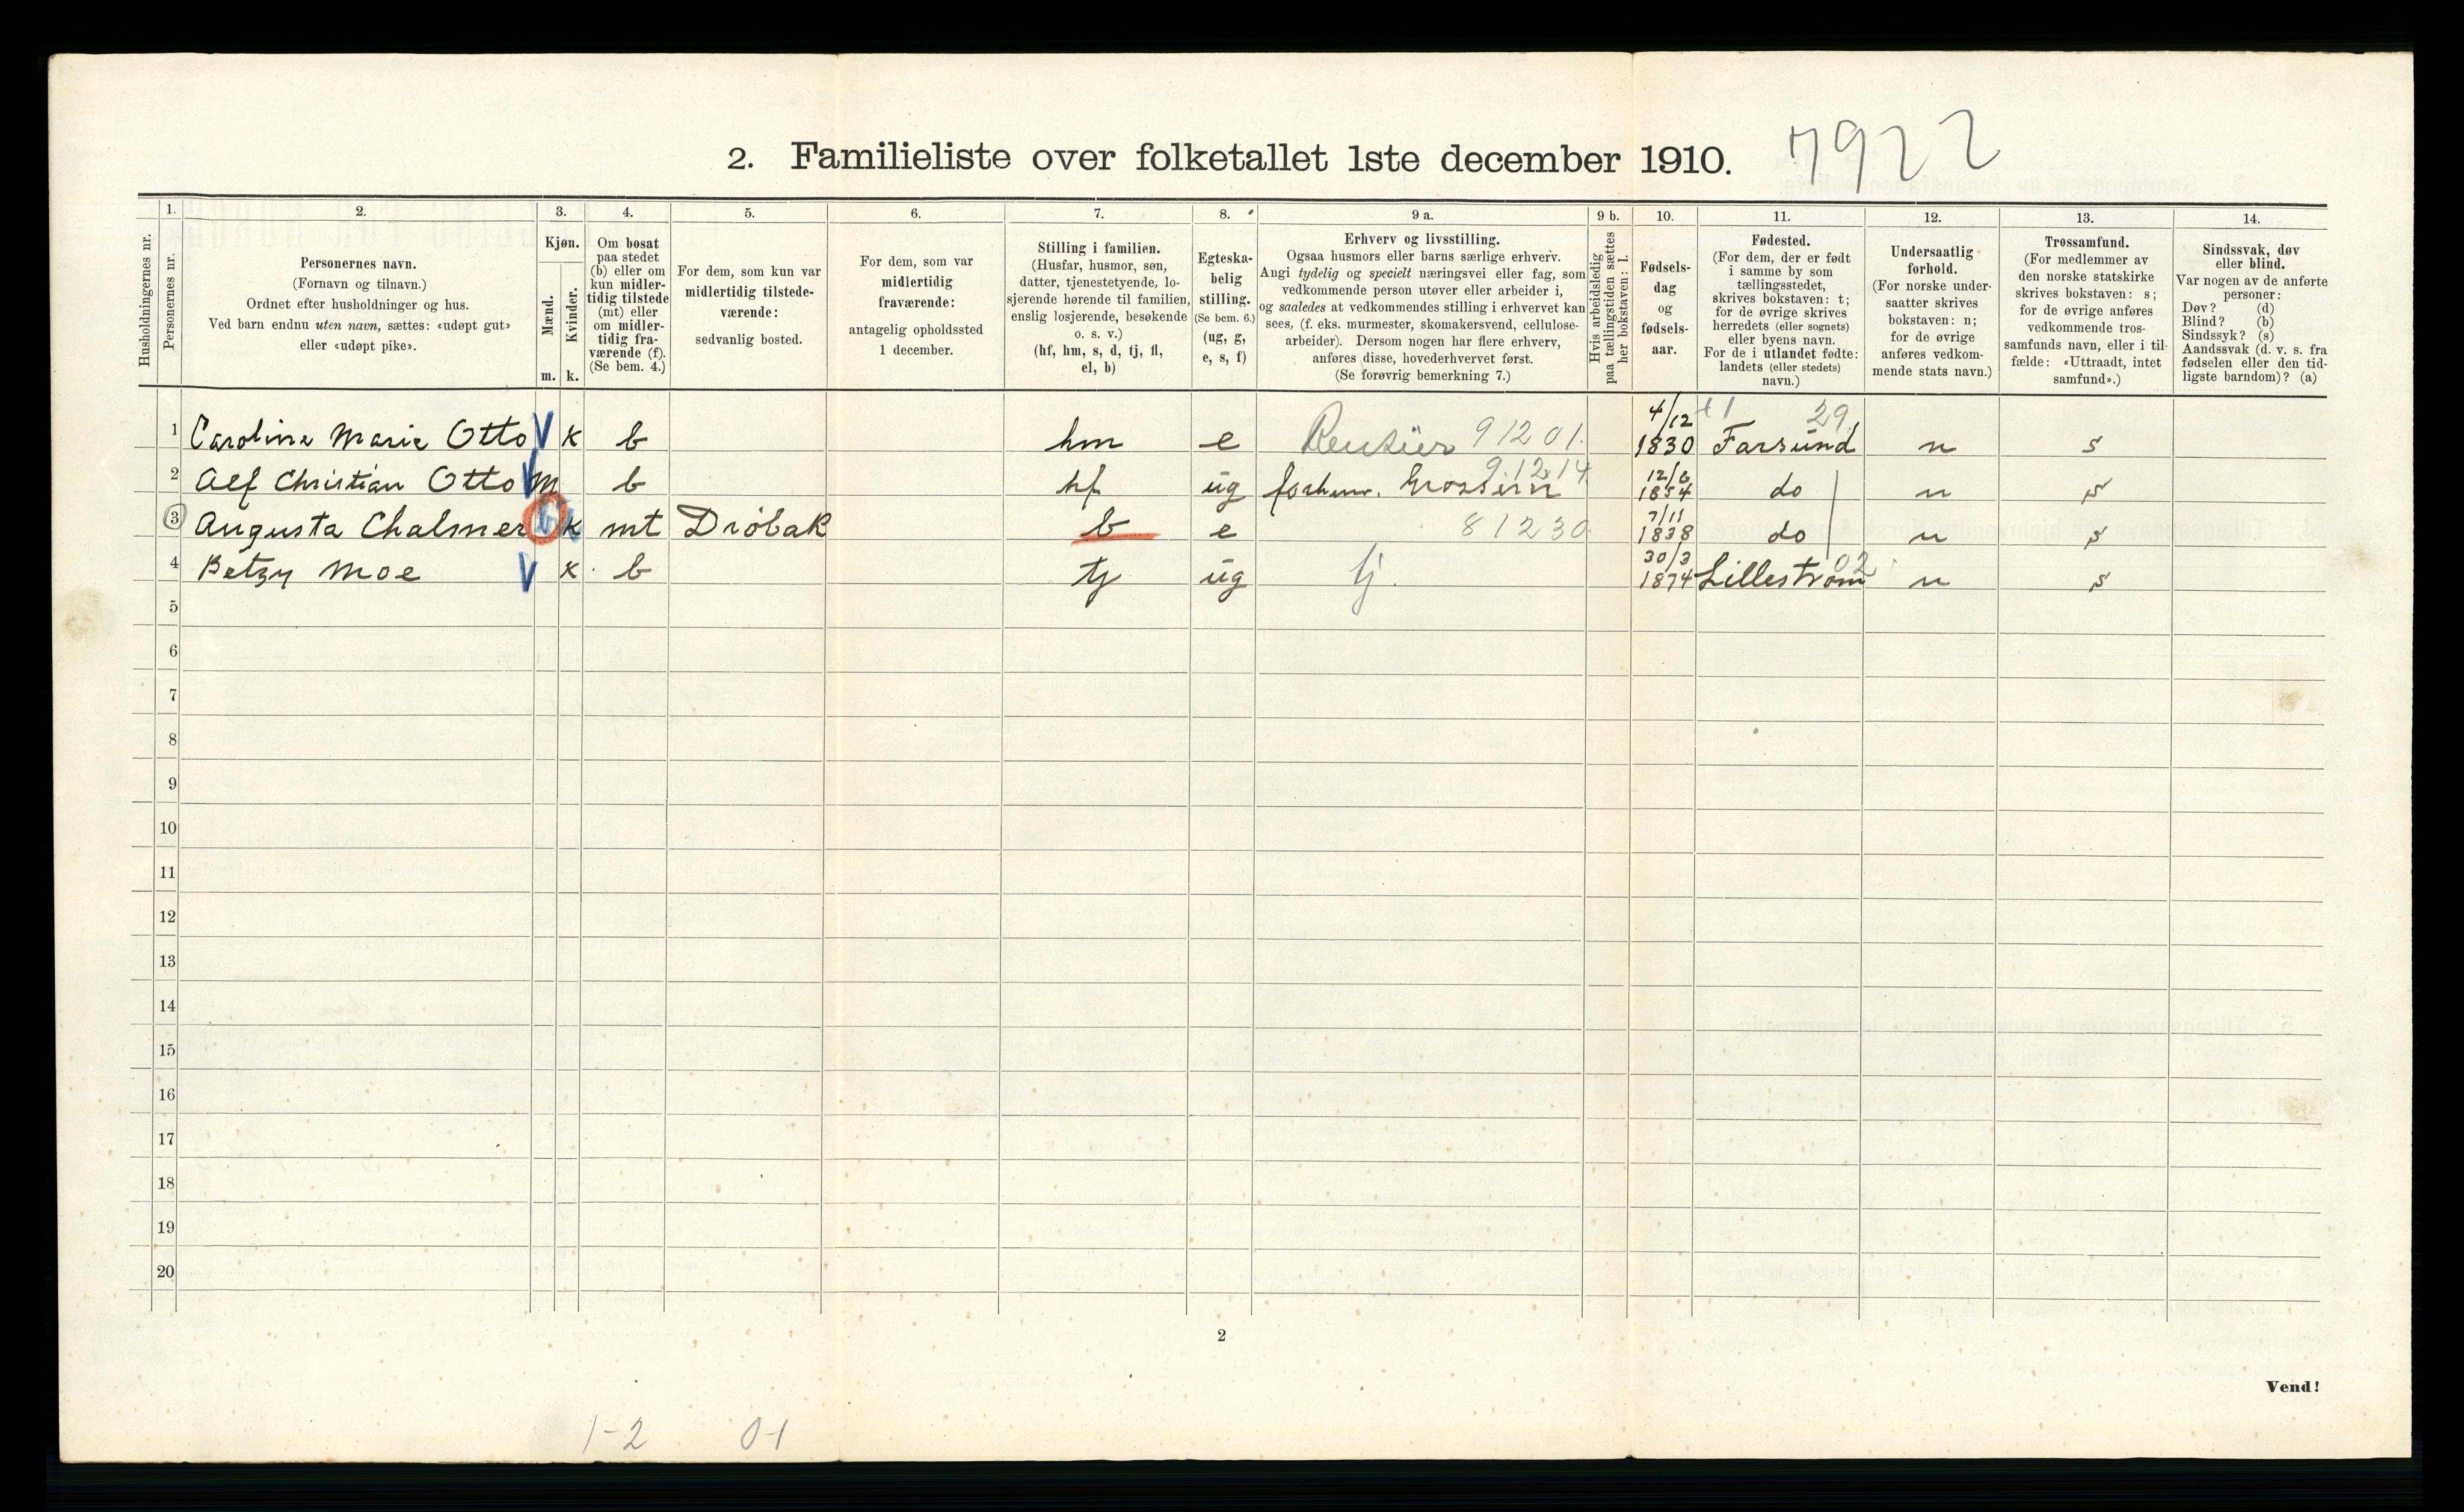 2. Familieliste over folketallet 1ste december 1910. 7922
1. 2. 3. 4. 5. 6. 7. 8. 9 a. 9 b. 10. 11. 12. 13. 14.
Husholdningernes nr.
Personernes nr.
Personernes navn.
(Fornavn og tilnavn.)
Ordnet efter husholdninger og hus.
Ved barn endnu uten navn, sættes: «udøpt gut»
eller «udøpt pike».
Kjøn.
Mænd.
m.
Kvinder.
k.
Om bosat
paa stedet
(b) eller om
kun midler-
tidig tilstede
(mt) eller
om midler-
tidig fra-
værende (f).
(Se bem. 4.)
For dem, som kun var
midlertidig tilstede-
værende:
sedvanlig bosted.
For dem, som var
midlertidig
fraværende:
antagelig opholdssted
1 december.
Stilling i familien.
(Husfar, husmor, søn,
datter, tjenestetyende, lo-
sjerende hørende til familien,
enslig losjerende, besøkende
o. s. v.)
(hf, hm, s, d, tj, fl,
el, b)
Egteska-
belig
stilling.
(Se bem. 6.)
(ug, g,
e, s, f)
Erhverv og livsstilling.
Ogsaa husmors eller barns særlige erhverv.
Angi tydelig og specielt næringsvei eller fag, som
vedkommende person utøver eller arbeider i,
og saaledes at vedkommendes stilling i erhvervet kan
sees, (f. eks. murmester, skomakersvend, cellulose-
arbeider). Dersom nogen har flere erhverv,
anføres disse, hovederhvervet først.
(Se forøvrig bemerkning 7.)
Hvis arbeidsledig
paa tællingstiden sættes
her bokstaven: l.
Fødsels-
dag
og
fødsels-
aar.
Fødested.
(For dem, der er født
i samme by som
tællingsstedet,
skrives bokstaven: t;
for de øvrige skrives
herredets (eller sognets)
eller byens navn.
For de i utlandet fødte:
landets (eller stedets)
navn.)
Undersaatlig
forhold.
(For norske under-
saatter skrives
bokstaven: n;
for de øvrige
anføres vedkom-
mende stats navn.)
Trossamfund.
(For medlemmer av
den norske statskirke
skrives bokstaven: s;
for de øvrige anføres
vedkommende tros-
samfunds navn, eller i til-
fælde: «Uttraadt, intet
samfund».)
Sindssvak, døv
eller blind.
Var nogen av de anførte
personer:
Døv? (d)
Blind? (b)
Sindssyk? (s)
Aandssvak (d. v. s. fra
fødselen eller den tid-
ligste barndom)? (a)
1 Caroline Marie Otto V k b hm e Rentier 91201. 4/12 1830 Farsund 29. n s
2 Alf Christian Otto V m b hf ug forhenv. 9.12.14 12/6 1854 do n s
3 Augusta Chalmer k mt Dröbak b e 81230. 7/11 1838 do n s
4 Betzy Moe V k. b tj ug tj. 30/3 1874 Lillestrøm 02 n s
5
6
7
8
9
10
11
12
13
14
15
16
17
18
19
20
2
Vend!
1-2 0-1